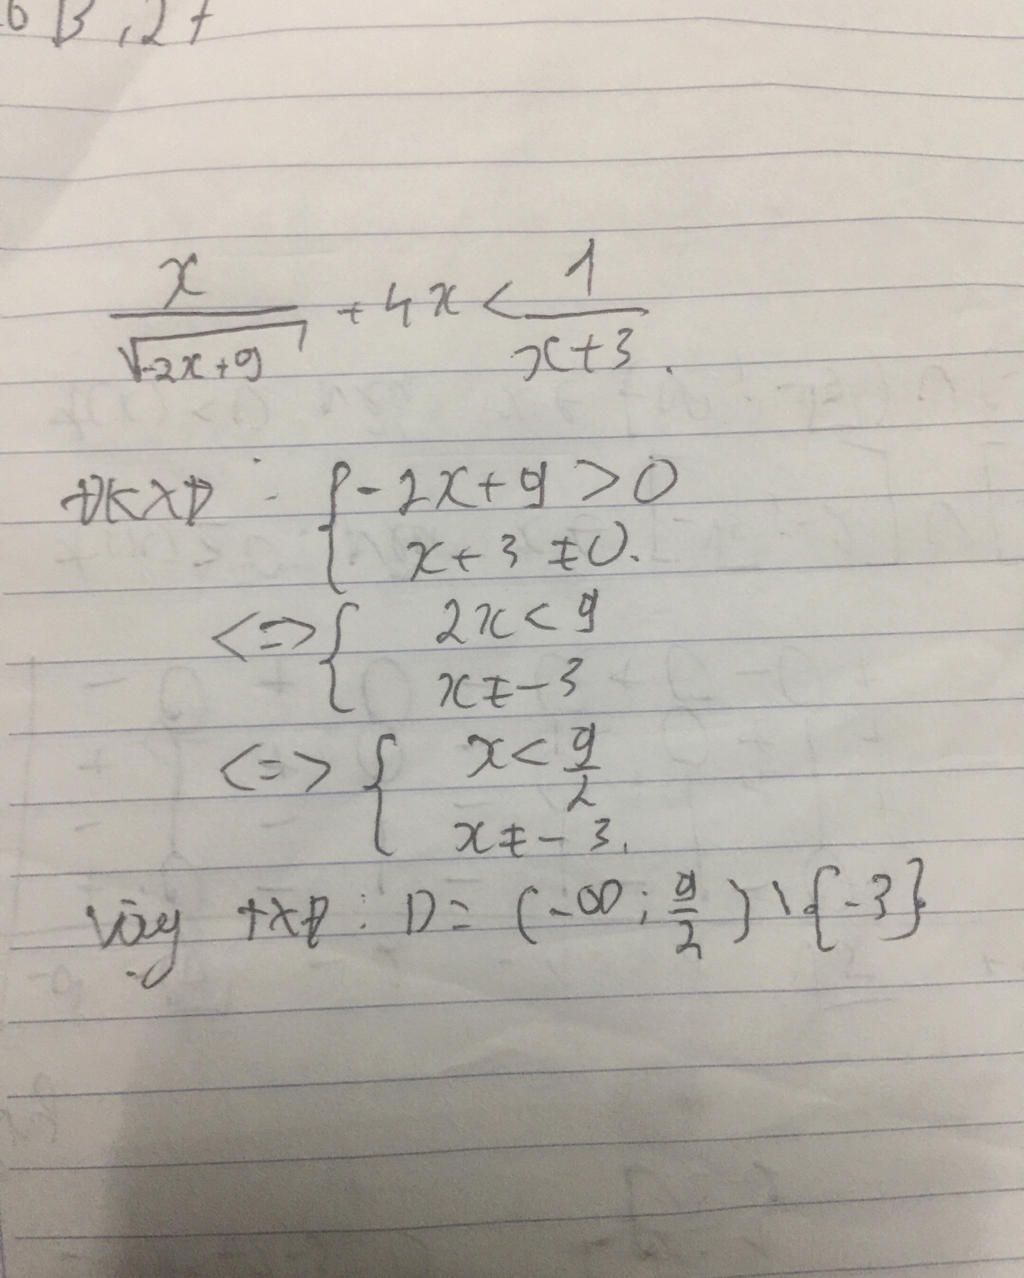 6 B, 2 +
x/√(-2x+9) + 4x < 1/(x+3).
ĐKXĐ : { -2x+9 > 0
x+3 ≠ 0.
<=> { 2x < 9
x ≠ -3
<=> { x < 9/2
x ≠ -3.
Vậy TXĐ : D = (-∞ ; 9/2) \ {-3}